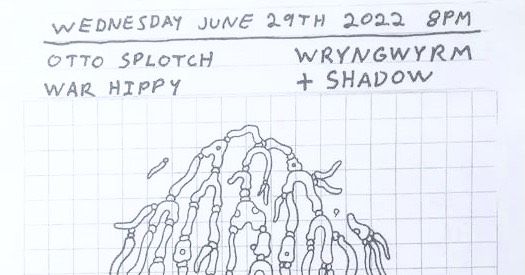 WEDNESDAY JUNE 29TH 2022 8PM
OTTO SPLOTCH
WAR HIPPY
WRYNGWYRM
+ SHADOW